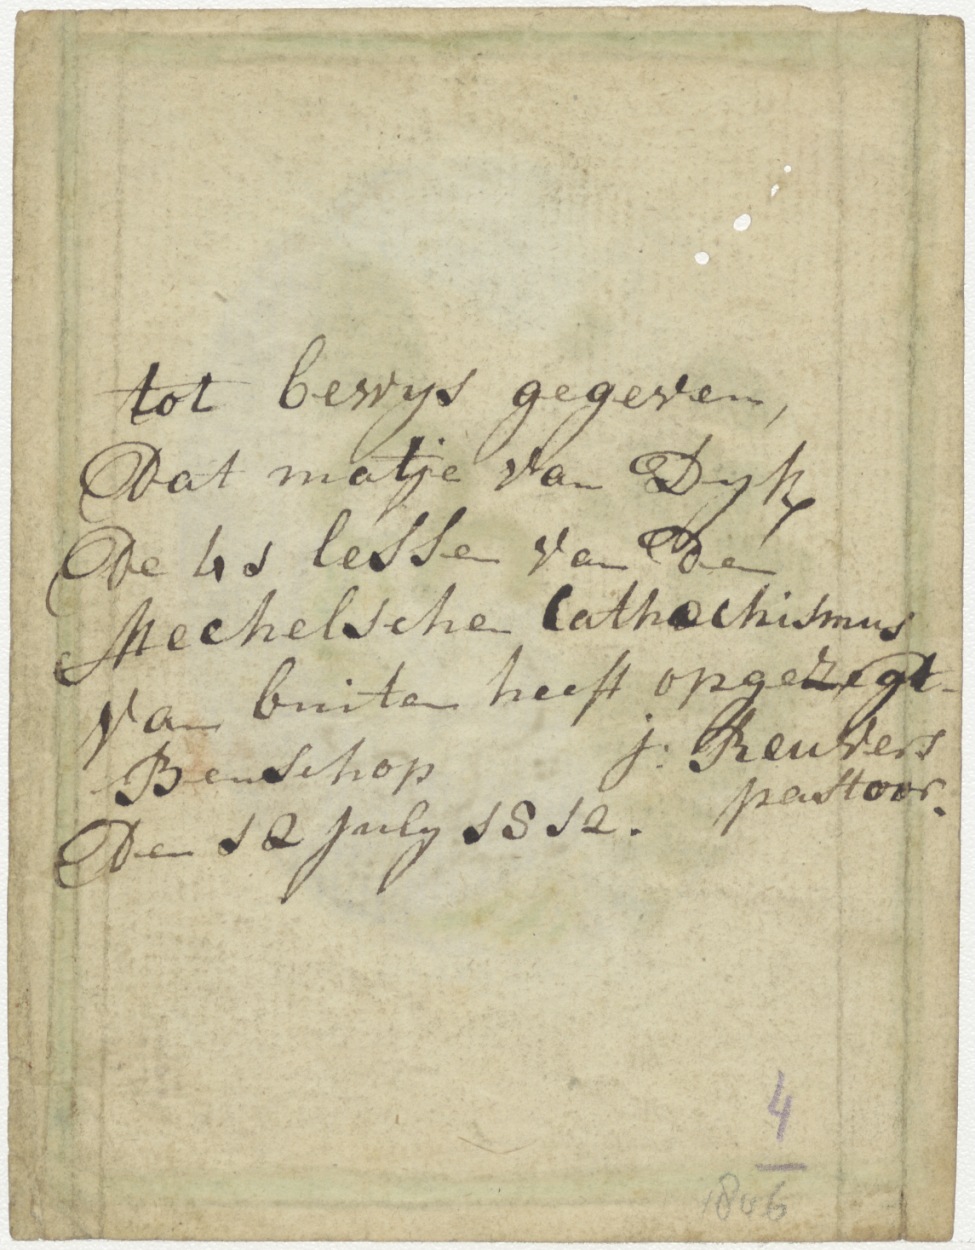 tot bewys gegeven,
Dat matje van Dyk
De 41 lessen van De
Mechelschen Cathechismus
van buiten heeft opgezegt
Benschop j: Reuvers
pastoor.
Den 12 july 1812.
4
1806